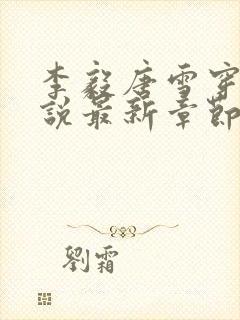 李毅唐雪穿
說最新章節
劉霜